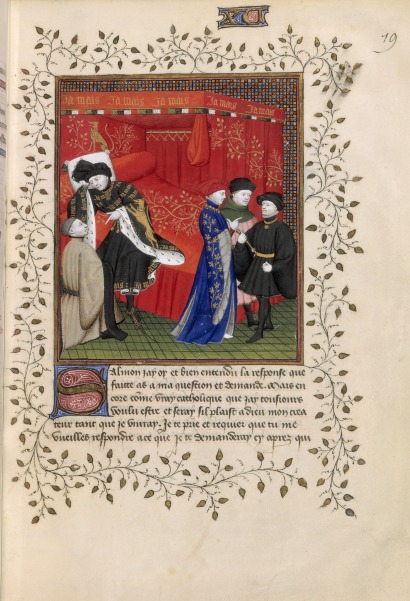 19
Ja mais Ja mais Ja mais Ja mais Ja mais
Salmon jay oy et bien entendu la response que
faitte as a ma question et demande. Mais en
core come vray catholique que jay tousiours
voulu estre et seray sil plaist a dieu mon crea
teur tant que je vivray. Je te prie et requier que tu me
vueilles respondre a ce que je te demanderay cy aprez qui